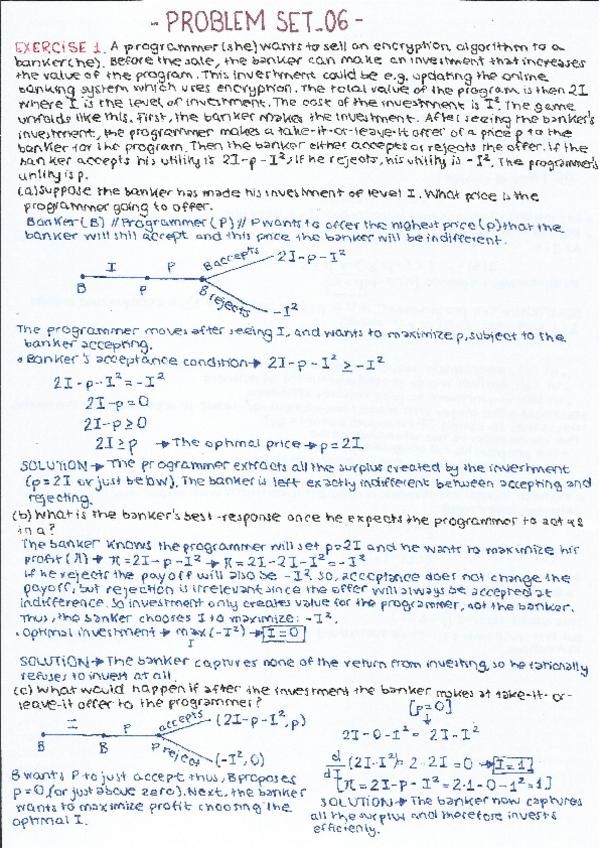 - PROBLEM SET_06 -
EXERCISE 1. A programmer (she) wants to sell an encryption algorithm to a
banker (he). Before the sale, the banker can make an investment that increases
the value of the program. This investment could be e.g. updating the online
banking system which uses encryption. The total value of the program is then 2I
where I is the level of investment. The cost of the investment is I². The game
unfolds like this. First, the banker makes the investment. After seeing the banker's
investment, the programmer makes a take-it-or-leave-it offer of a price p to the
banker for the program. Then the banker either accepts or rejects the offer. If the
banker accepts his utility is 2I-p-I², if he rejects, his utility is -I². The programmer's
utility is p.
(a) Suppose the banker has made his investment of level I. What price is the
programmer going to offer.
Banker (B) // Programmer (P) // P wants to offer the highest price (p) that the
banker will still accept and this price the banker will be indifferent.
I P B accepts 2I-p-I²
B P B rejects -I²
The programmer moves after seeing I, and wants to maximize p, subject to the
banker accepting.
• Banker's acceptance condition → 2I-p-I² ≥ -I²
2I-p-I² = -I²
2I-p=0
2I-p≥0
2I≥p → The optimal price → p=2I
SOLUTION → The programmer extracts all the surplus created by the investment
(p=2I or just below). The banker is left exactly indifferent between accepting and
rejecting.
(b) What is the banker's best-response once he expects the programmer to act as
in a?
The banker knows the programmer will set p=2I and he wants to maximize his
profit (π) → π=2I-p-I² → π=2I-2I-I²=-I²
If he rejects the payoff will also be -I². So, acceptance does not change the
payoff, but rejection is irrelevant since the offer will always be accepted at
indifference. So investment only creates value for the programmer, not the banker.
Thus, the banker chooses I to maximize: -I².
• Optimal investment → max (-I²) → I=0
I
SOLUTION → The banker captures none of the return from investing, so he rationally
refuses to invest at all.
(c) What would happen if after the investment the banker makes at take-it-or-
leave-it offer to the programmer?
I P accepts (2I-p-I², p)
B B P reject (-I², 0)
B wants P to just accept thus, B proposes
p=0 (or just above zero). Next, the banker
wants to maximize profit choosing the
optimal I.
[p=0]
↓
2I-0-I² = 2I-I²
d/dI (2I-I²) = 2-2I=0 → I=1
[π=2I-p-I² = 2·1-0-1²=1]
SOLUTION → The banker now captures
all the surplus and therefore invests
efficiently.